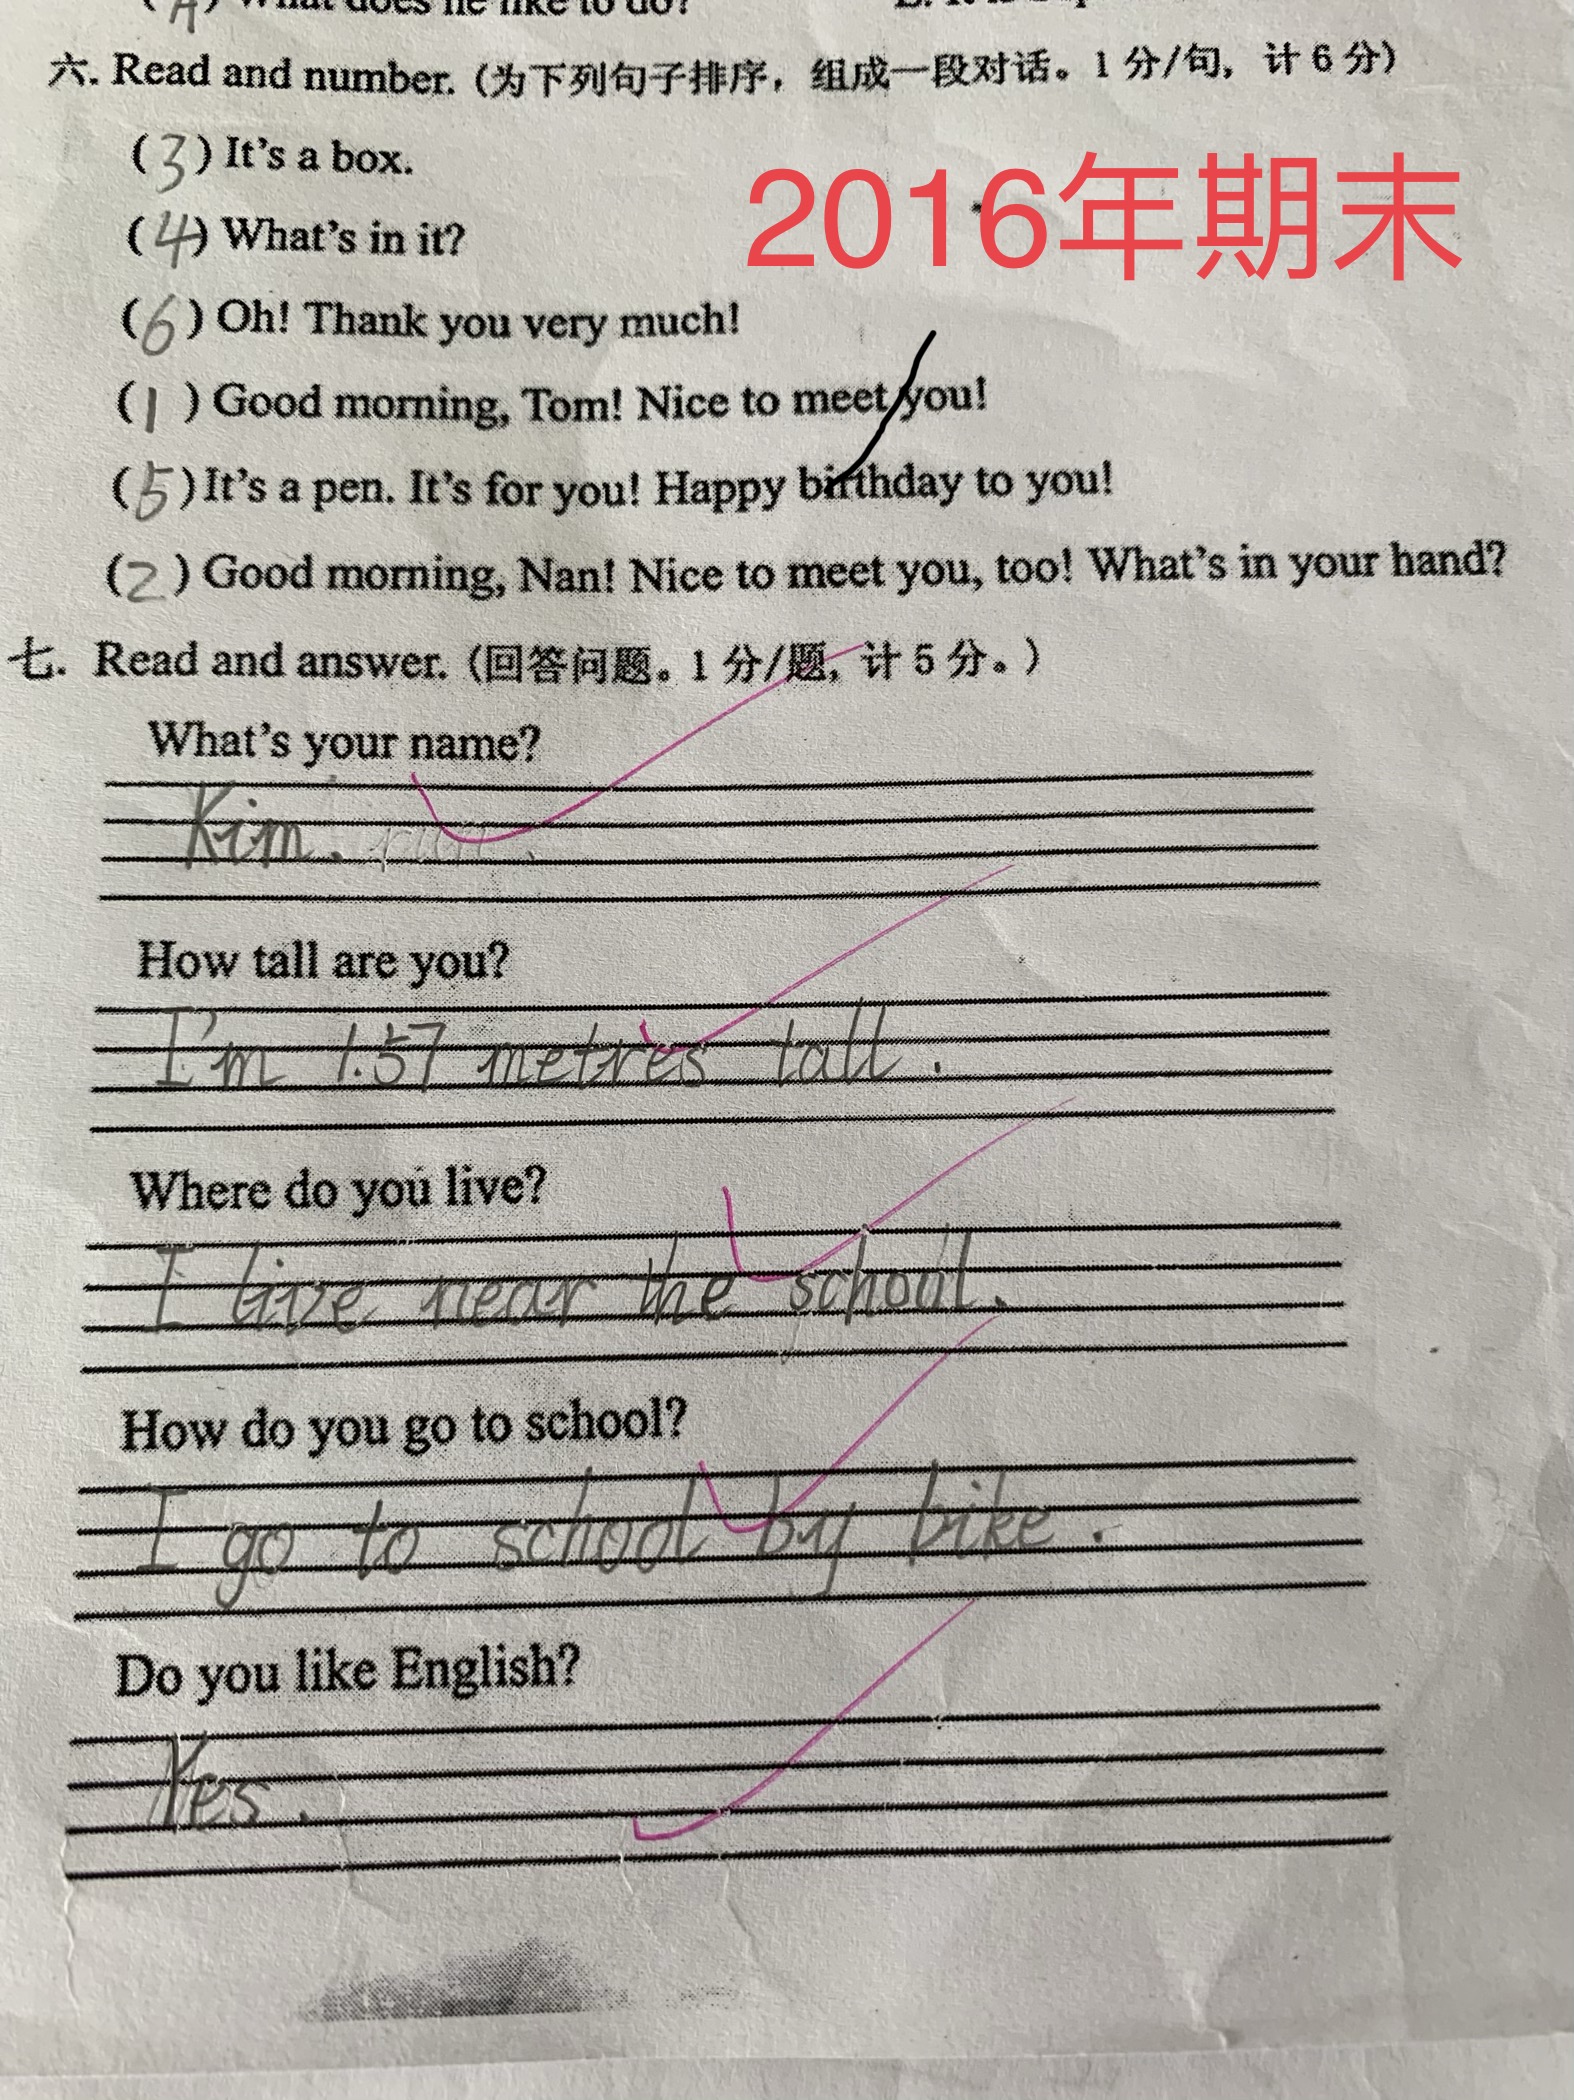 (A) What does he like to do?
六. Read and number. (为下列句子排序，组成一段对话。1 分/句，计 6 分)
(3) It's a box.
2016年期末
(4) What's in it?
(6) Oh! Thank you very much!
(1) Good morning, Tom! Nice to meet you!
(5) It's a pen. It's for you! Happy birthday to you!
(2) Good morning, Nan! Nice to meet you, too! What's in your hand?
七. Read and answer. (回答问题。1 分/题, 计 5 分。)
What's your name?
Kim.
How tall are you?
I'm 1.57 metres tall.
Where do you live?
I live near the school.
How do you go to school?
I go to school by bike.
Do you like English?
Yes.